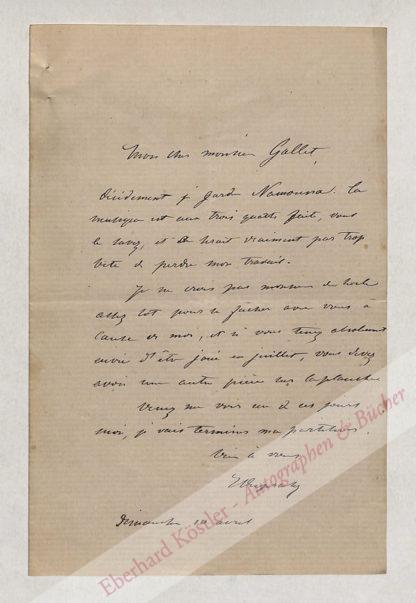 Mon cher monsieur Gallet,
Décidement je garde Namouna. La
musique est aux trois quarts faite, vous
le savez, et ce serait vraiment par trop
bête de perdre mon travail.
Je ne crois pas monsieur de
assez sot pour se fâcher avec vous à
cause de moi, et si vous tenez absolument
d'être joué en juillet, vous devez
avoir une autre pièce sur la planche
Venez me voir un de ces jours
moi, je vais terminer ma partition.
Bien à vous
Dimanche 10 avril
Eberhard Köstler - Autographen & Bücher